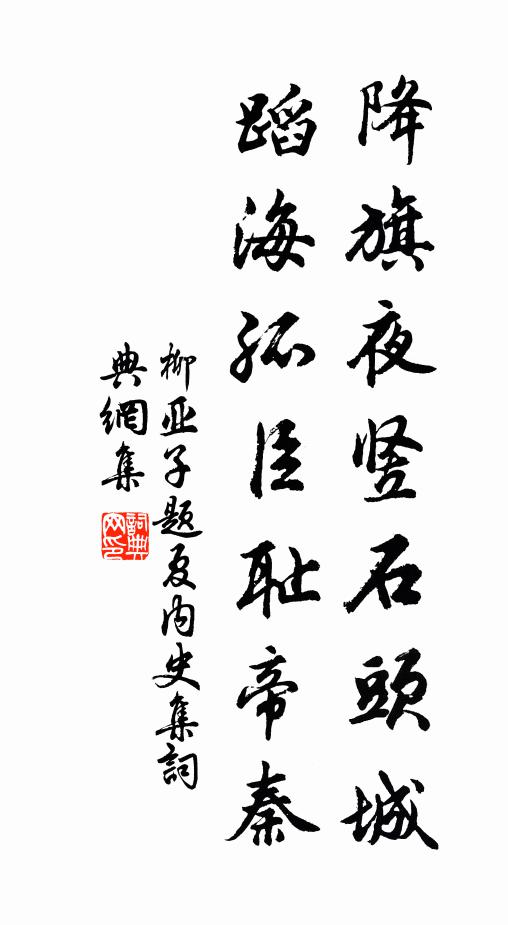 降旗夜竖石頭城
蹈海孤臣耻帝秦
柳亚子题夏内史集詞
典網集
詞典
网印